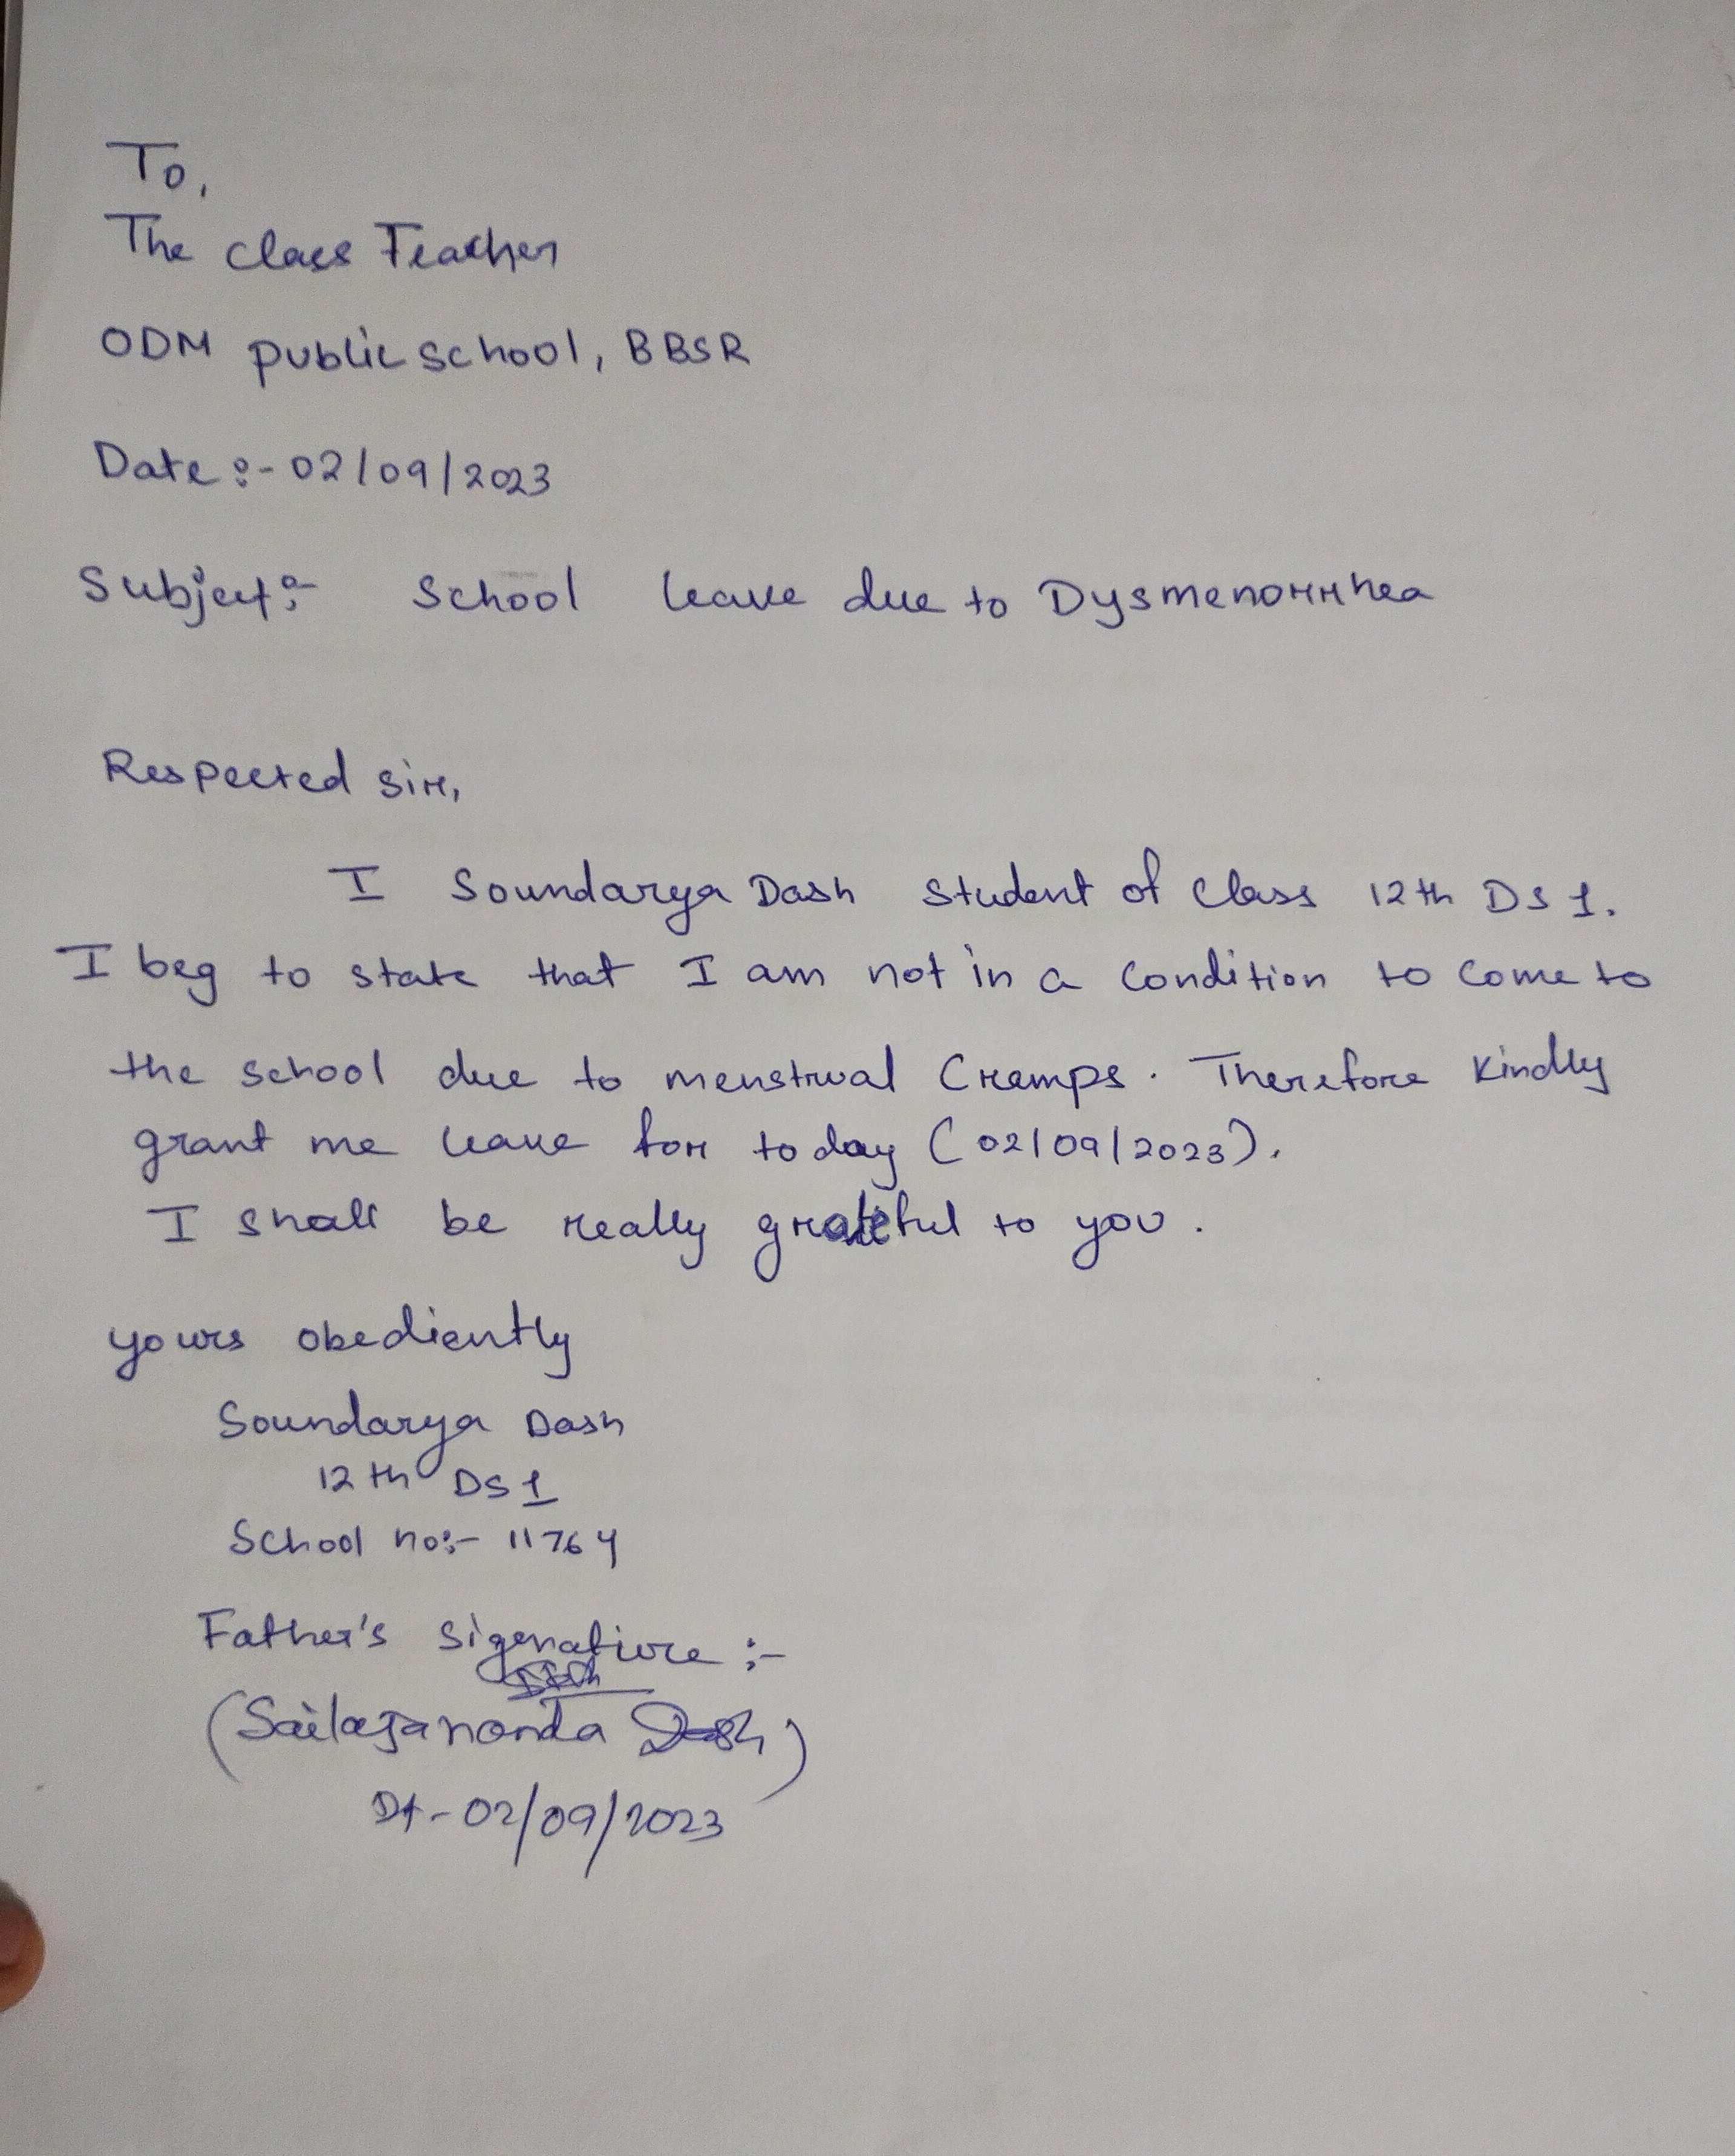 To,
The Class Teacher
ODM public school, BBSR
Date :- 02/09/2023
Subject:- School leave due to Dysmenorrhea
Respected Sir,
I Soundarya Dash Student of Class 12th DS 1.
I beg to state that I am not in a Condition to Come to
the school due to menstrual Cramps. Therefore Kindly
grant me leave for today (02/09/2023).
I shall be really grateful to you.
yours obediently
Soundarya Dash
12th DS 1
School no:- 11764
Father's sigenature :-
(Sailajananda Dash)
Dt - 02/09/2023